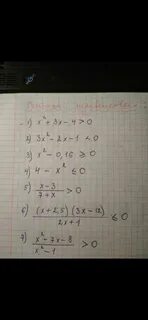 1) x² + 3x - 4 > 0
2) 3x² - 2x - 1 < 0
3) x² - 0,16 ≥ 0
4) 4 - x² ≤ 0
5) \frac{x-3}{7+x} > 0
6) \frac{(x+2,5)(3x-12)}{2x+1} ≤ 0
7) \frac{x²-7x-8}{x²-1} > 0